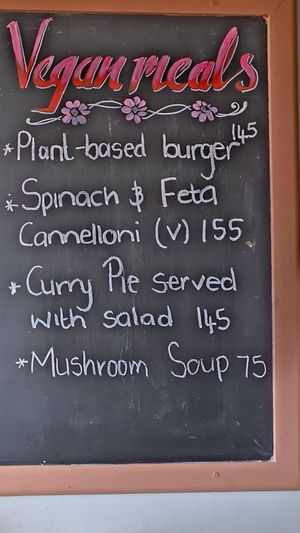 Vegan meals
* Plant-based burger 145
* Spinach & Feta
Cannelloni (v) 155
* Curry Pie served
with salad 145
* Mushroom Soup 75